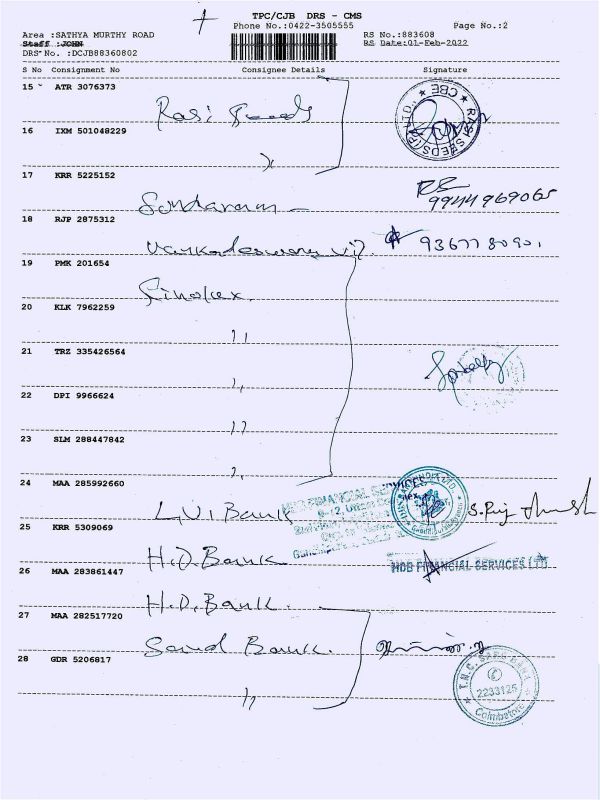 TPC/CJB DRS - CMS
Phone No.:0422-3505555
Page No.:2
Area :SATHYA MURTHY ROAD
RS No.:883608
Staff :JOHN
RS Date:01-Feb-2022
DRS No. :DCJB88360802
S No Consignment No Consignee Details Signature
15 ATR 3076373
Rasi Seeds
RASI SEEDS (P) LTD. CBE
16 IXM 501048229
〃
17 KRR 5225152
Sundaram
9944969065
18 RJP 2875312
9367780901
19 PMK 201654
Finolex
20 KLK 7962259
〃
21 TRZ 335426564
〃
22 DPI 9966624
〃
23 SLM 288447842
〃
24 MAA 285992660
L.V.I Bank
FINANCIAL SERVICES
25 KRR 5309069
H.D. Bank
HDB FINANCIAL SERVICES LTD
26 MAA 283861447
H.D. Bank
27 MAA 282517720
Saud Bank.
28 GDR 5206817
〃
2233125
Coimbatore